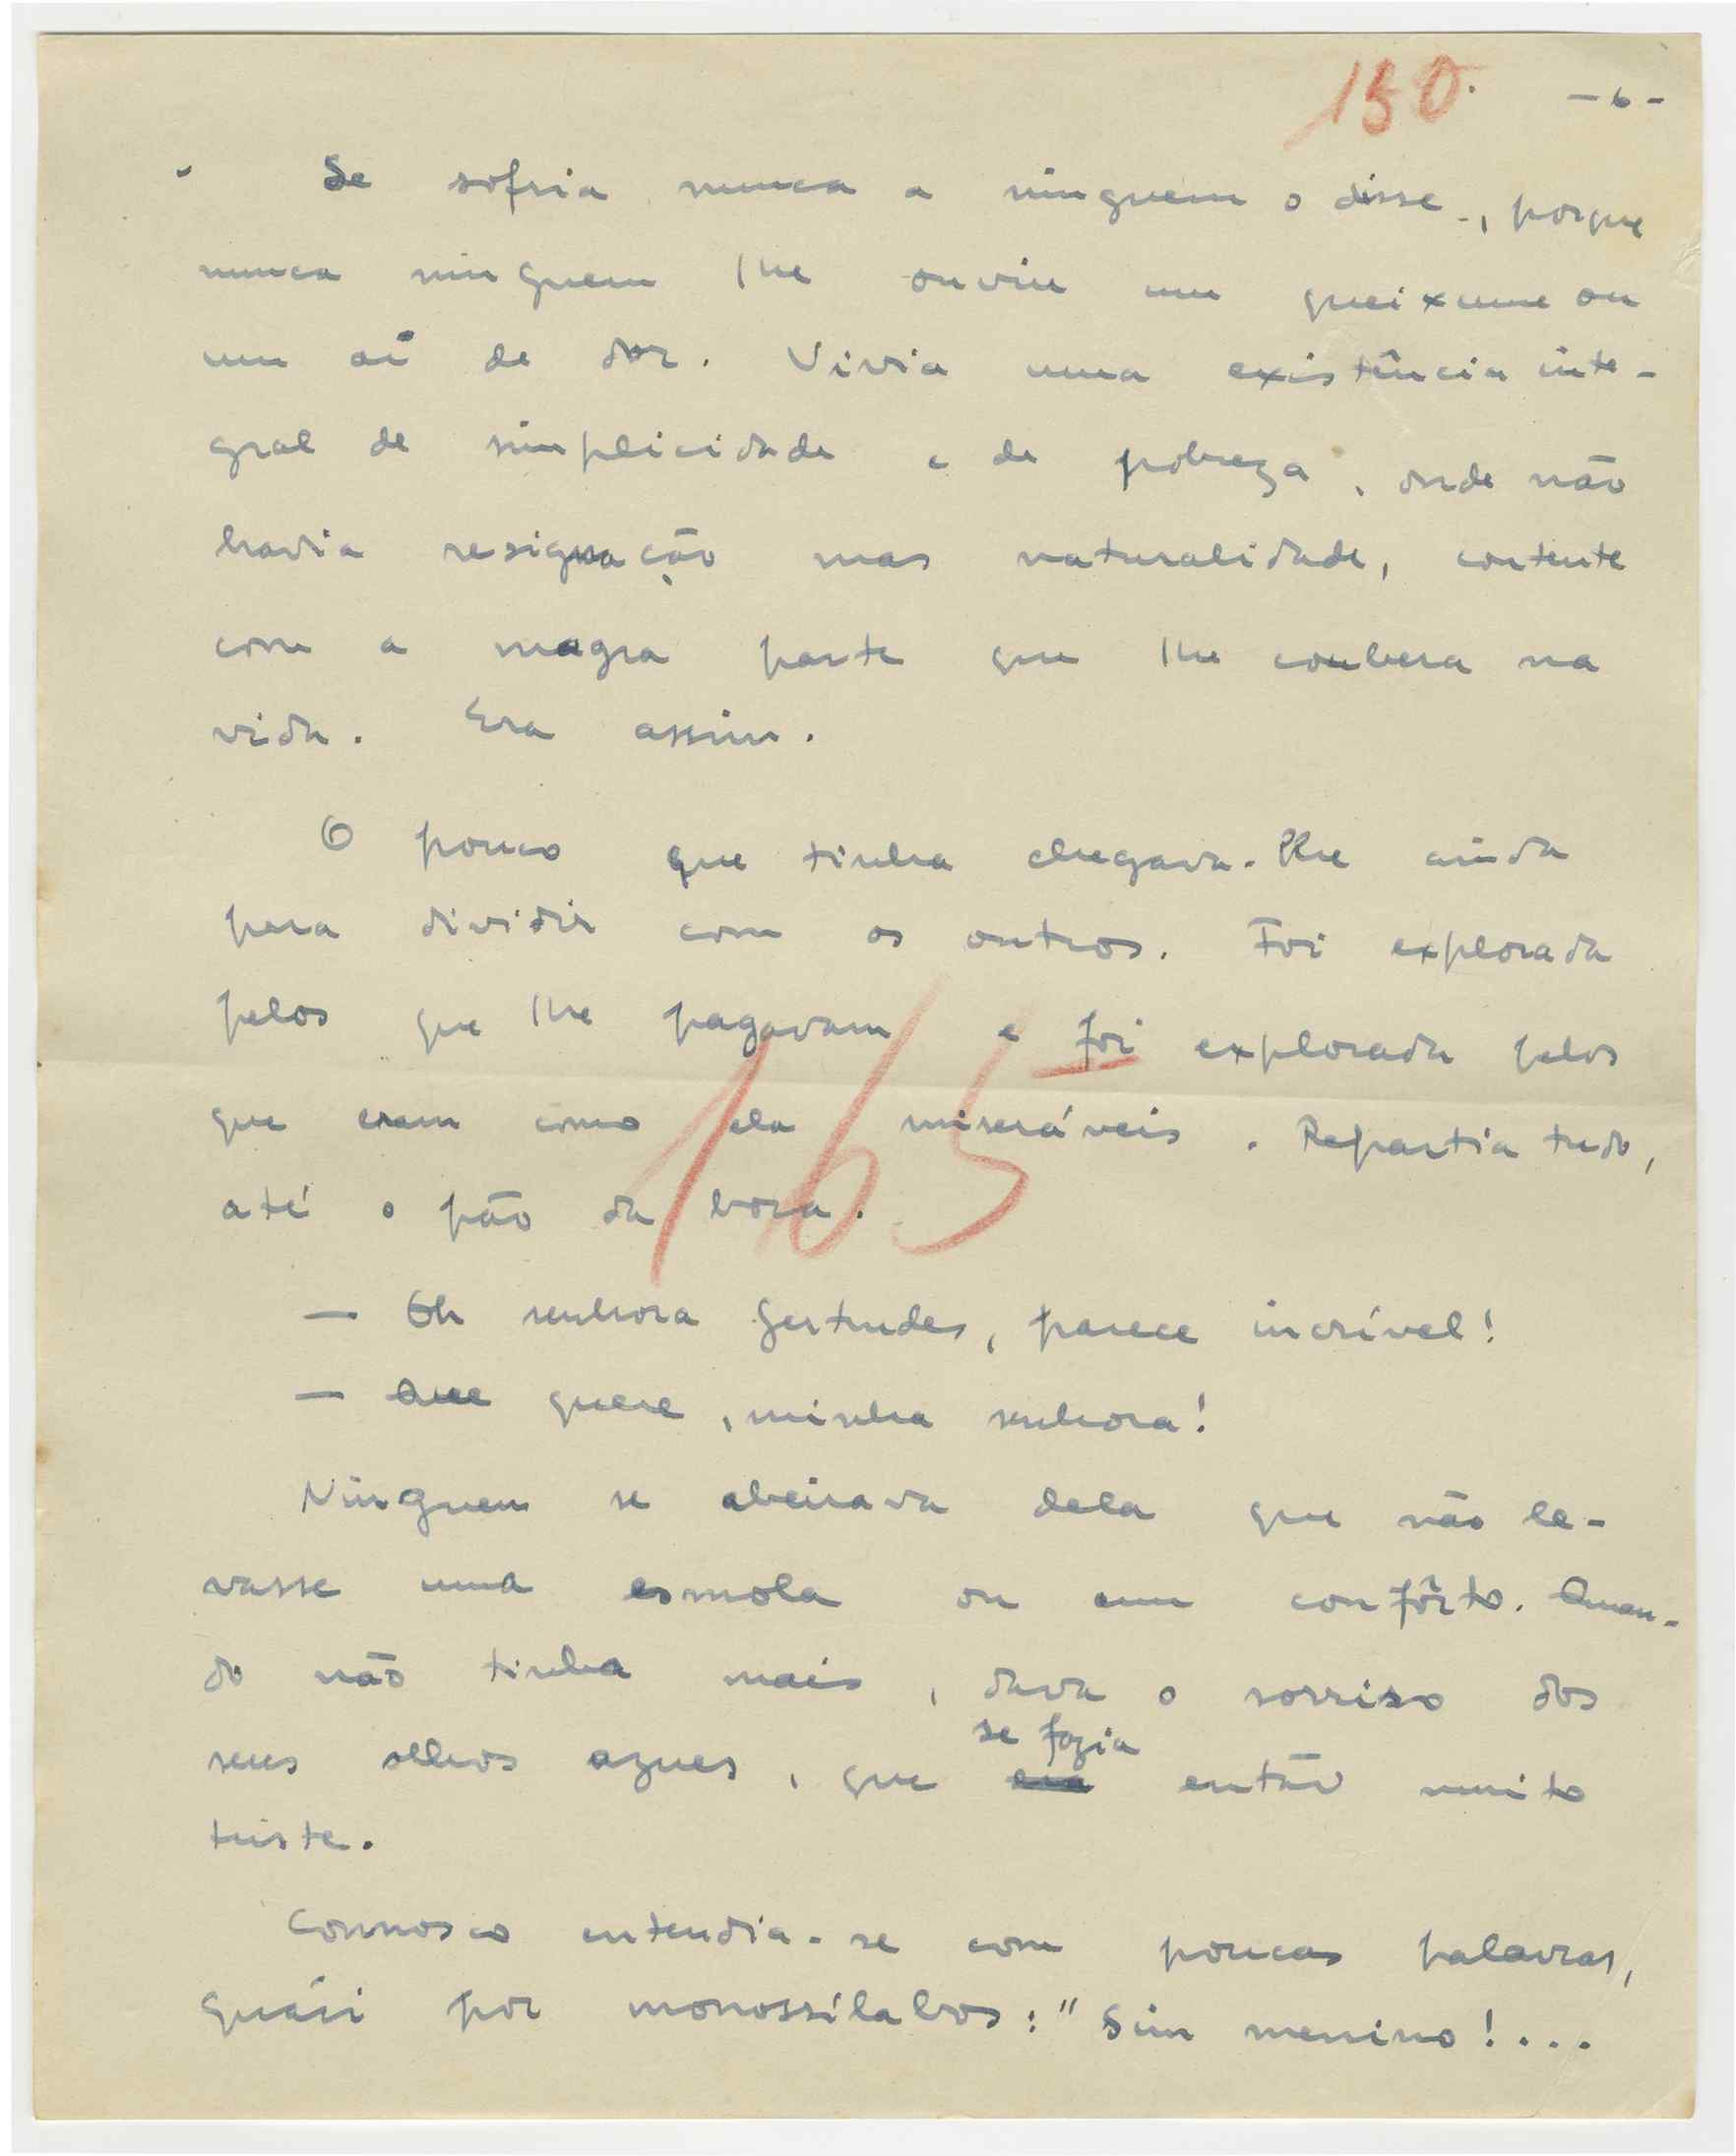 150. -6-
Se sofria nunca a ninguem o disse, porque
nunca ninguem lhe ouviu um queixume ou
um ai de dor. Vivia uma existência inte-
gral de simplicidade e de pobreza, onde não
havia resignação mas naturalidade, contente
com a magra parte que lhe coubera na
vida. Era assim.
O pouco que tinha chegava-lhe ainda
para dividir com os outros. Foi explorada
pelos que lhe pagavam e foi explorada pelos
que eram como ela miseráveis. Repartia tudo,
165
até o pão da boca.
— Oh senhora Gertrudes, parece incrível!
— Que quere, minha senhora!
Ninguem se abeirava dela que não le-
vasse uma esmola ou um confôrto. Quan-
do não tinha mais, dava o sorriso dos
se fazia
seus olhos azues, que era então muito
triste.
Connosco entendia-se com poucas palavras,
quási por monossílabos: "Sim menino!...